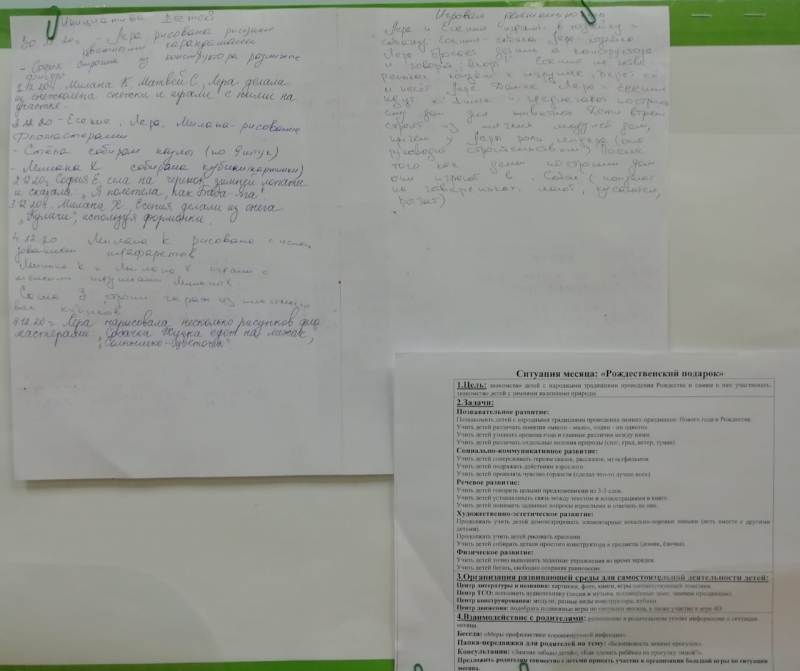 Инициатива Детей
30.11.20. - Лера рисовала рисунки
цветными карандашами
- София строила из конструктора различные
фигуры
1.12.20г Милана К, Матвей С, Лера делали
из снежколепа снежки и играли с ними на
участке.
2.12.20 - Есения, Лера, Милана - рисование
Фломастерами
- Стёпа собирал пазлы (по 9 штук)
- Милана К собирала кубики (картинки)
2.12.20г София Е села на черенок зимней лопаты
и сказала: „Я полетела, как Баба-Яга"
3.12.20г. Милана Х, Есения делали из снега
„Куличи", используя формочки.
4.12.20 Милана К рисовала с исполь
зованием трафаретов
Милана К и Милана Х играли с
Саша строил гараж из
кубиков
9.12.20г. Лера нарисовала несколько рисунков фло
мастерами: „Собачка Жучка едет на лыжах",
„Солнышко-цветочек"
Игровая деятельность
Лера и Есения играли в хозяйку и
собаку. Есения - собака, Лера - хозяйка
Лера бросает деталь от конструктора
и говорит:
к игрушке, берёт её
и несёт Лере. Далее Лера и Есения
идут к и предлагают построить
дом для Дети
строят из мягких модулей дом,
причём у Леры роль (она
руководит строительством). После
того как дети построили дом
они играют в Собак (ползают
на четвереньках, лают, кусаются,
рычат)
Ситуация месяца: «Рождественский подарок»
1.Цель: знакомство детей с народными традициями проведения Рождества и самим в них участвовать;
знакомство детей с зимними явлениями природы.
2.Задачи:
Познавательное развитие:
Познакомить детей с народными традициями проведения зимних праздников: Нового года и Рождества.
Учить детей различать понятия «много - мало», «один - ни одного».
Учить детей узнавать времена года и главные различия между ними.
Учить детей различать отдельные явления природы (снег, град, ветер, туман).
Социально-коммуникативное развитие:
Учить детей сопереживать героям сказок, рассказов, мультфильмов.
Учить детей подражать действиям взрослого.
Учить детей проявлять чувство гордости (сделал что-то лучше всех).
Речевое развитие:
Учить детей говорить целыми предложениями из 3-5 слов.
Учить детей устанавливать связь между текстом и иллюстрациями в книге.
Учить детей понимать заданные вопросы взрослыми и отвечать на них.
Художественно-эстетическое развитие:
Продолжать учить детей демонстрировать элементарные вокально-хоровые навыки (петь вместе с другими
детьми).
Продолжать учить детей рисовать красками.
Учить детей собирать детали простого конструктора в предметы (домик, ёлочка).
Физическое развитие:
Учить детей точно выполнять заданные упражнения во время зарядки.
Учить детей бегать, свободно сохраняя равновесие.
3.Организация развивающей среды для самостоятельной деятельности детей:
Центр литературы и познания: картинки, фото, книги, игры соответствующей тематики.
Центр ТСО: пополнить аудиотехнику (песни и музыка, посвящённые зиме, зимним праздникам).
Центр конструирования: модули, разные виды конструктора, кубики.
Центр движения: подобрать подвижные игры по ситуации месяца, а также участие в игре 4D.
4.Взаимодействие с родителями: размещение в родительском уголке информации о ситуации
месяца.
Беседа: «Меры профилактики коронавирусной инфекции».
Папка-передвижка для родителей на тему: «Безопасность зимних прогулок».
Консультации: «Зимние забавы детей», «Как одевать ребёнка на прогулку зимой?».
Предложить родителям совместно с детьми принять участие в организации большой игры по ситуации
месяца.